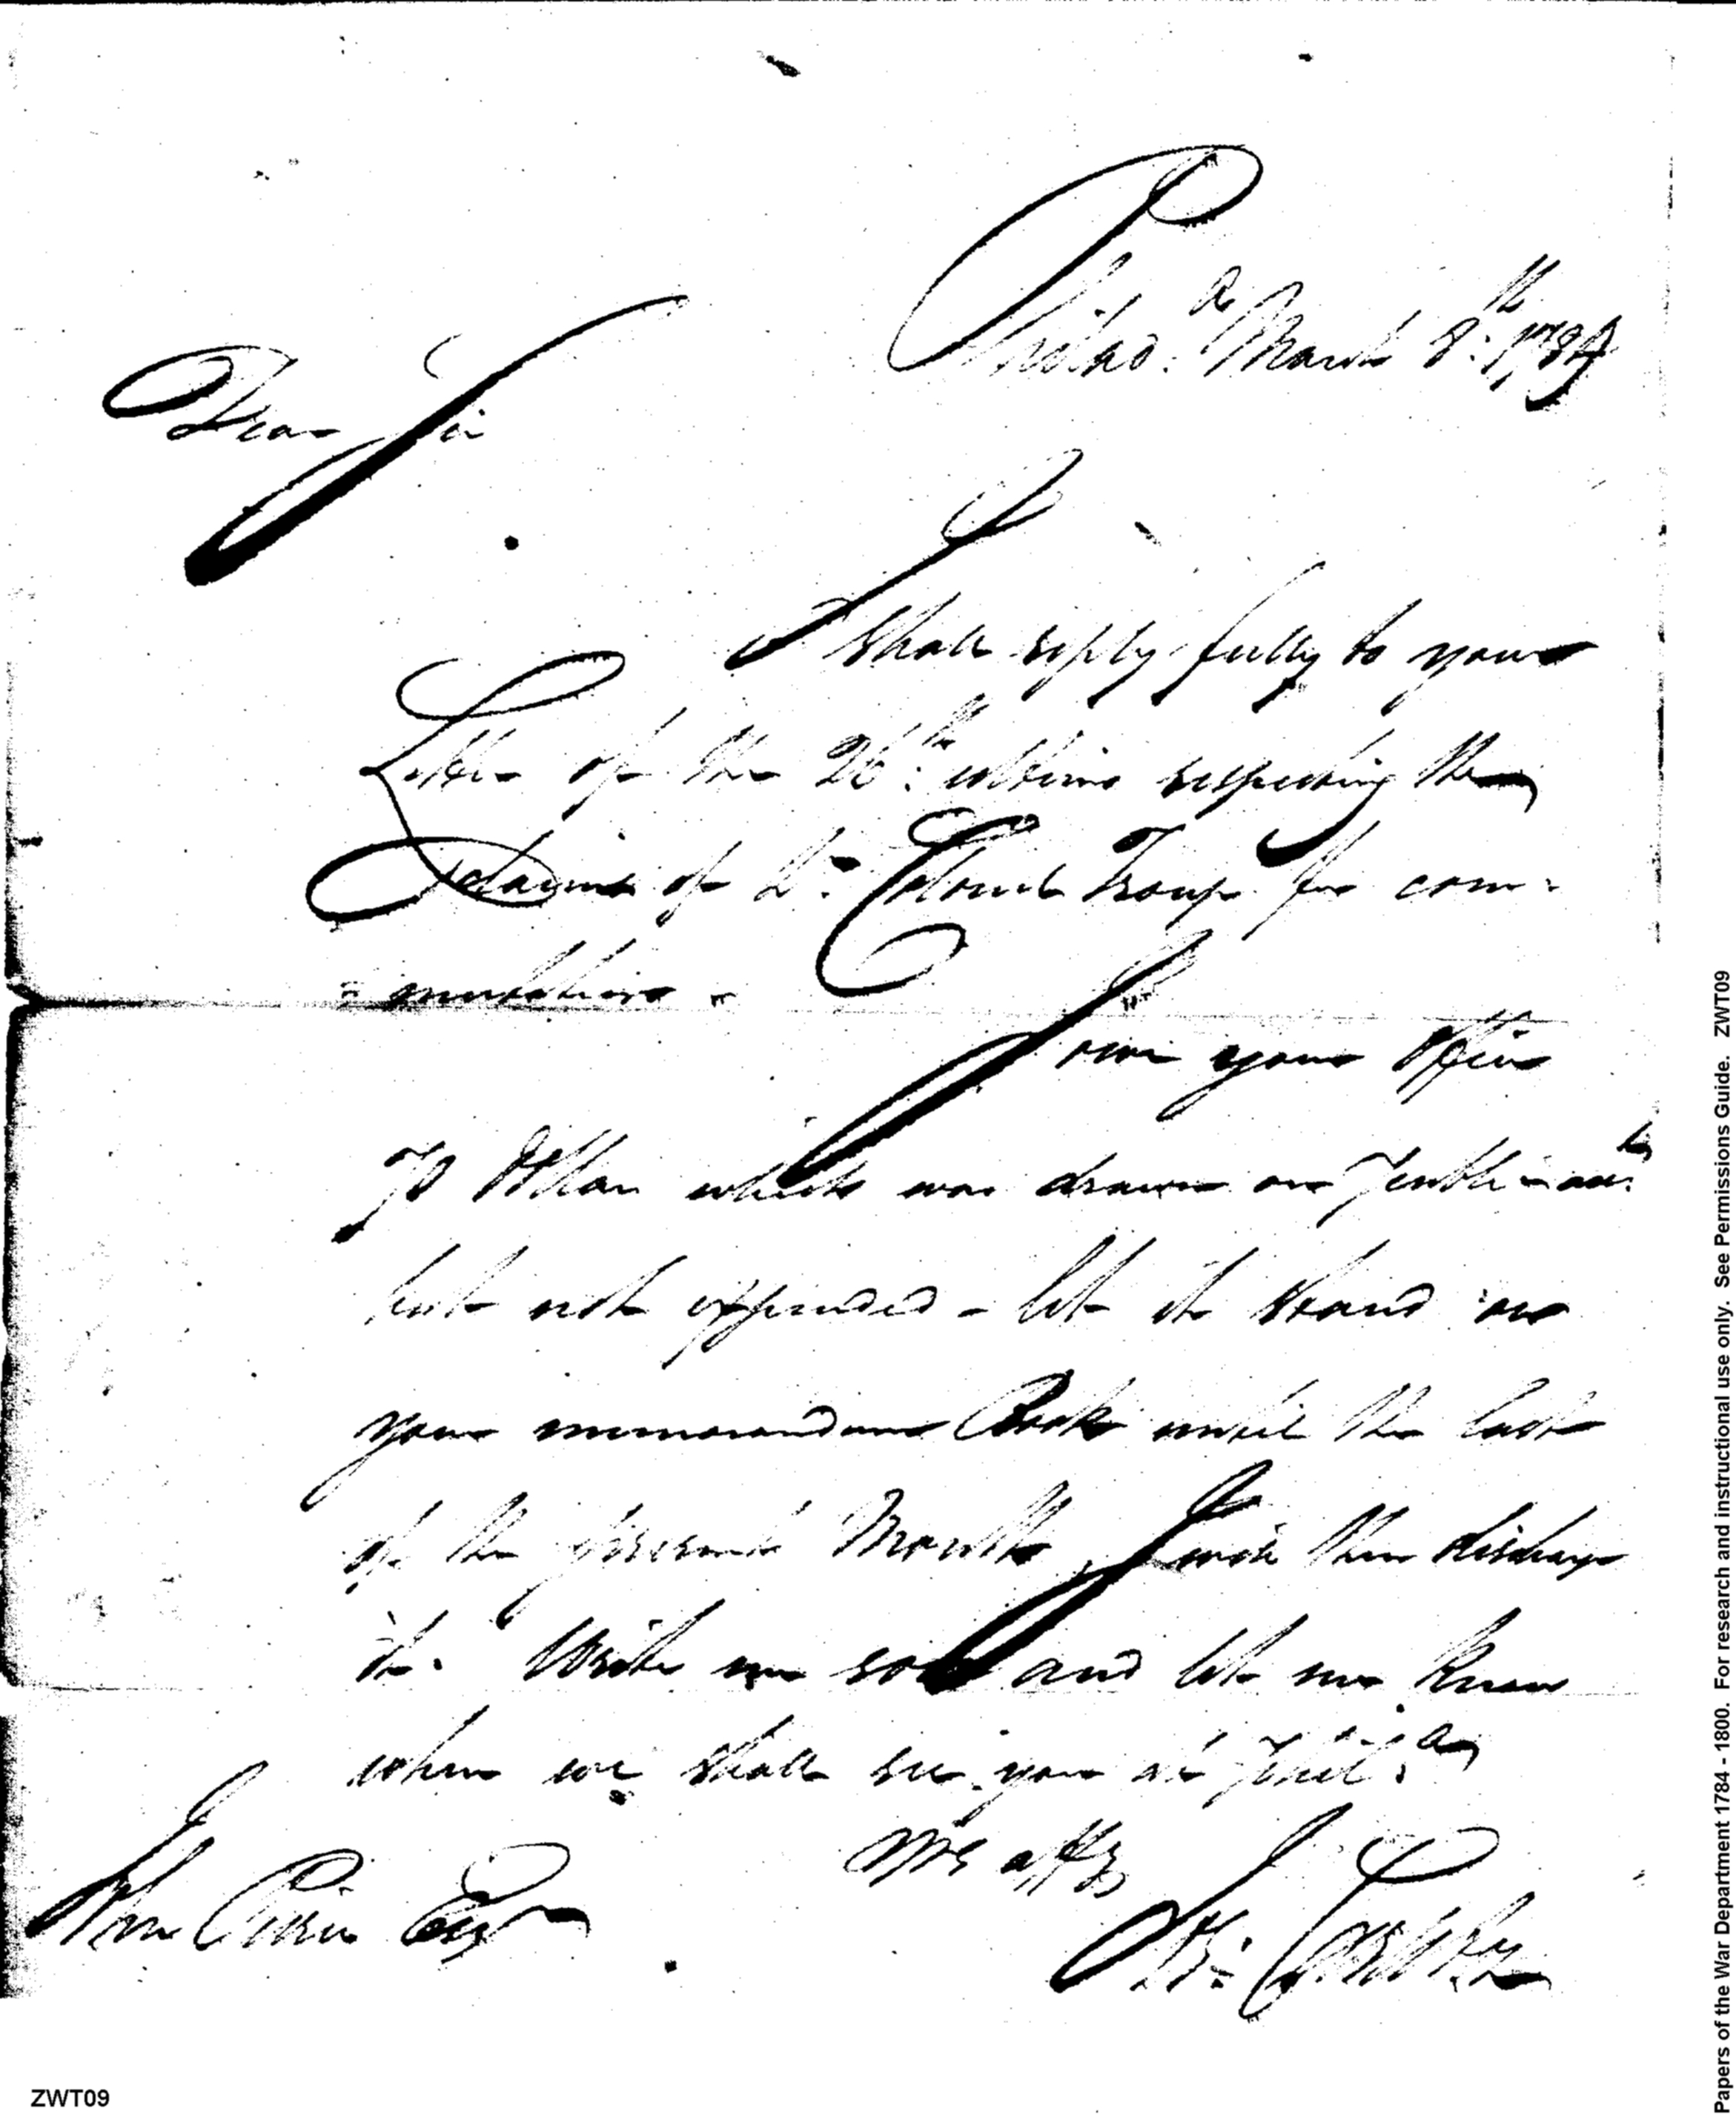 Philad.a March 8.th 1784
Dear Sir
I shall reply fully to your
Letter of the 26.th ultimo respecting the
claim of Lt. Colonel Troup for com=
=mutation.
I owe your Office
70 Dollars which was drawn on
but not expended - let it stand on
your memorandum Book until the last
of the present Month, I will then discharge
it. Write me soon and let me know
when we shall see you at Phil.a
Yrs affy
Jn Pierce Esq
Papers of the War Department 1784 - 1800. For research and instructional use only. See Permissions Guide. ZWT09
ZWT09